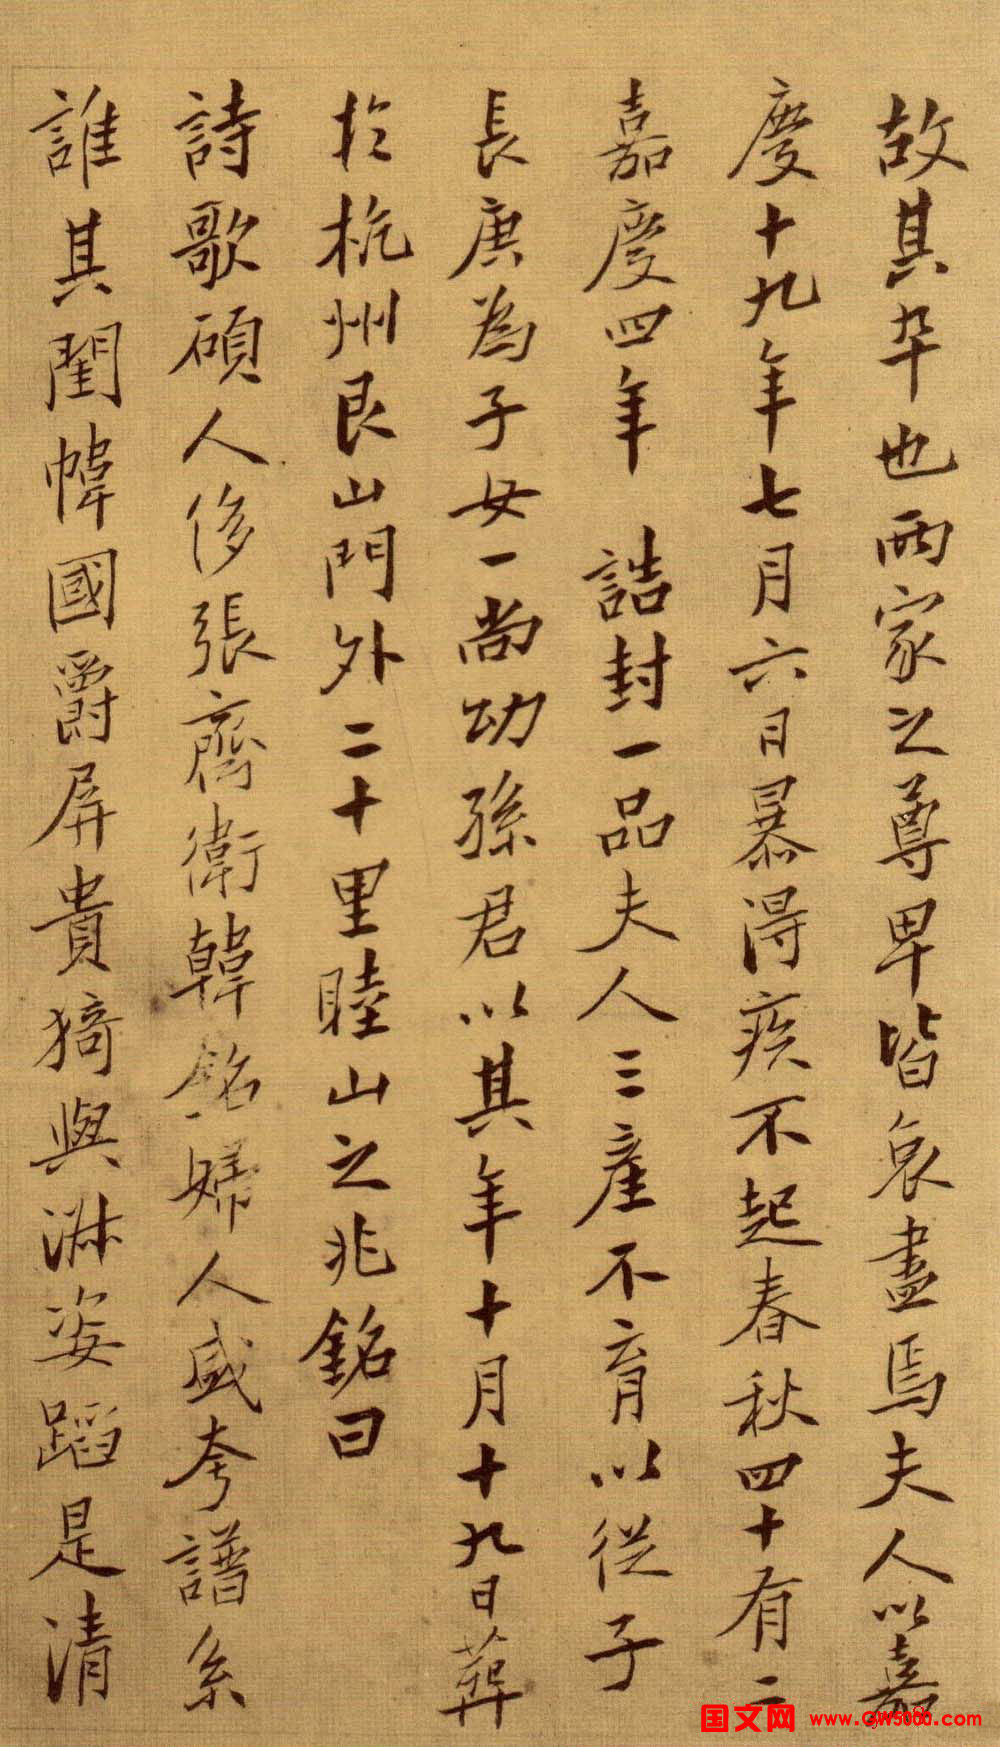 故其卒也兩家之尊卑皆哀盡焉夫人以嘉
慶十九年七月六日暴得疾不起春秋四十有二
嘉慶四年 誥封一品夫人三產不育以從子
長庚為子女一尚幼孫君以其年十月十九日葬
於杭州艮山門外二十里睦山之兆銘曰
詩歌碩人侈張齊衛韓銘婦人盛夸譜系
誰其閨幃國爵屏貴猗與淋姿蹈是清
国文网 www.GW5000.com